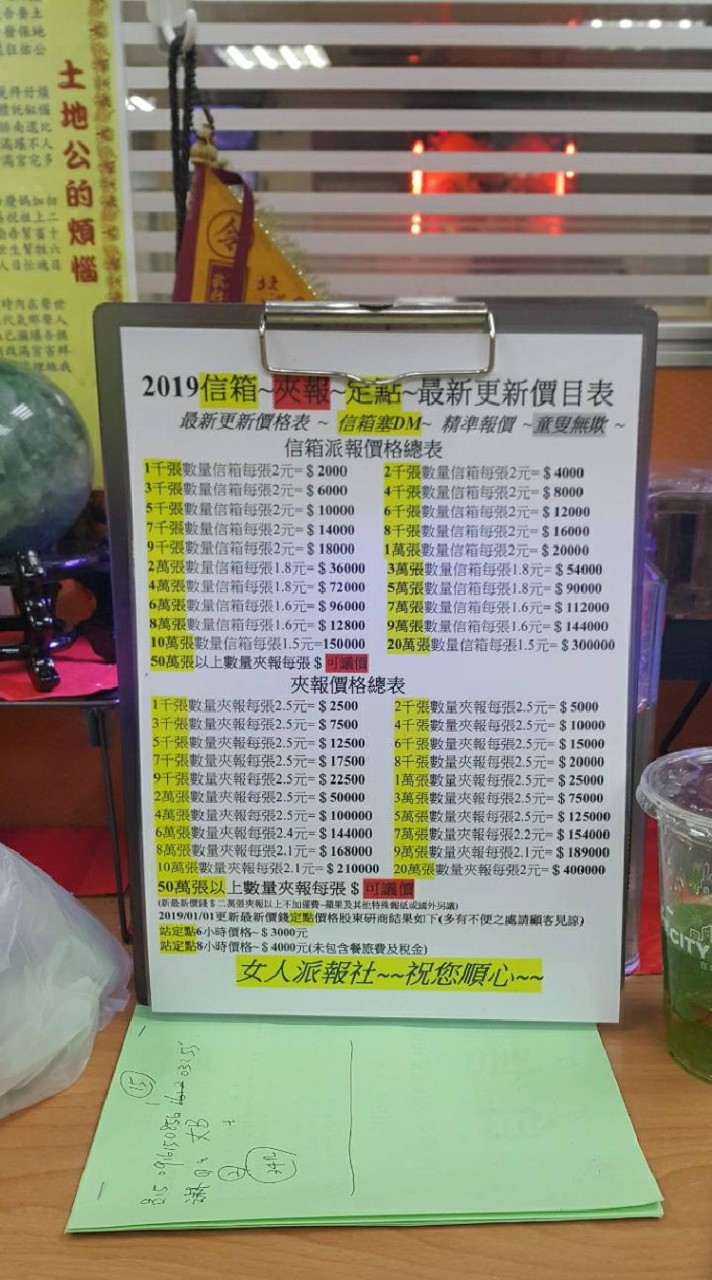 土地公的煩惱
令
北
2019信箱~夾報~定點~最新更新價目表
最新更新價格表 ~ 信箱塞DM~ 精準報價 ~童叟無欺 ~
信箱派報價格總表
1千張數量信箱每張2元=＄2000 2千張數量信箱每張2元=＄4000
3千張數量信箱每張2元=＄6000 4千張數量信箱每張2元=＄8000
5千張數量信箱每張2元=＄10000 6千張數量信箱每張2元=＄12000
7千張數量信箱每張2元=＄14000 8千張數量信箱每張2元=＄16000
9千張數量信箱每張2元=＄18000 1萬張數量信箱每張2元=＄20000
2萬張數量信箱每張1.8元=＄36000 3萬張數量信箱每張1.8元=＄54000
4萬張數量信箱每張1.8元=＄72000 5萬張數量信箱每張1.8元=＄90000
6萬張數量信箱每張1.6元=＄96000 7萬張數量信箱每張1.6元=＄112000
8萬張數量信箱每張1.6元=＄12800 9萬張數量信箱每張1.6元=＄144000
10萬張數量信箱每張1.5元=150000 20萬張數量信箱每張1.5元=＄300000
50萬張以上數量夾報每張＄可議價
夾報價格總表
1千張數量夾報每張2.5元=＄2500 2千張數量夾報每張2.5元=＄5000
3千張數量夾報每張2.5元=＄7500 4千張數量夾報每張2.5元=＄10000
5千張數量夾報每張2.5元=＄12500 6千張數量夾報每張2.5元=＄15000
7千張數量夾報每張2.5元=＄17500 8千張數量夾報每張2.5元=＄20000
9千張數量夾報每張2.5元=＄22500 1萬張數量夾報每張2.5元=＄25000
2萬張數量夾報每張2.5元=＄50000 3萬張數量夾報每張2.5元=＄75000
4萬張數量夾報每張2.5元=＄100000 5萬張數量夾報每張2.5元=＄125000
6萬張數量夾報每張2.4元=＄144000 7萬張數量夾報每張2.2元=＄154000
8萬張數量夾報每張2.1元=＄168000 9萬張數量夾報每張2.1元=＄189000
10萬張數量夾報每張2.1元=＄210000 20萬張數量夾報每張2元=＄400000
50萬張以上數量夾報每張＄可議價
(新最新價錢＄二萬張夾報以上不加運費~蘋果及其他特殊報紙或國外另議)
2019/01/01更新最新價錢定點價格股東研商結果如下(多有不便之處請顧客見諒)
站定點6小時價格~＄3000元
站定點8小時價格~＄4000元(未包含餐旅費及稅金)
女人派報社~~祝您順心~~
CITY
15